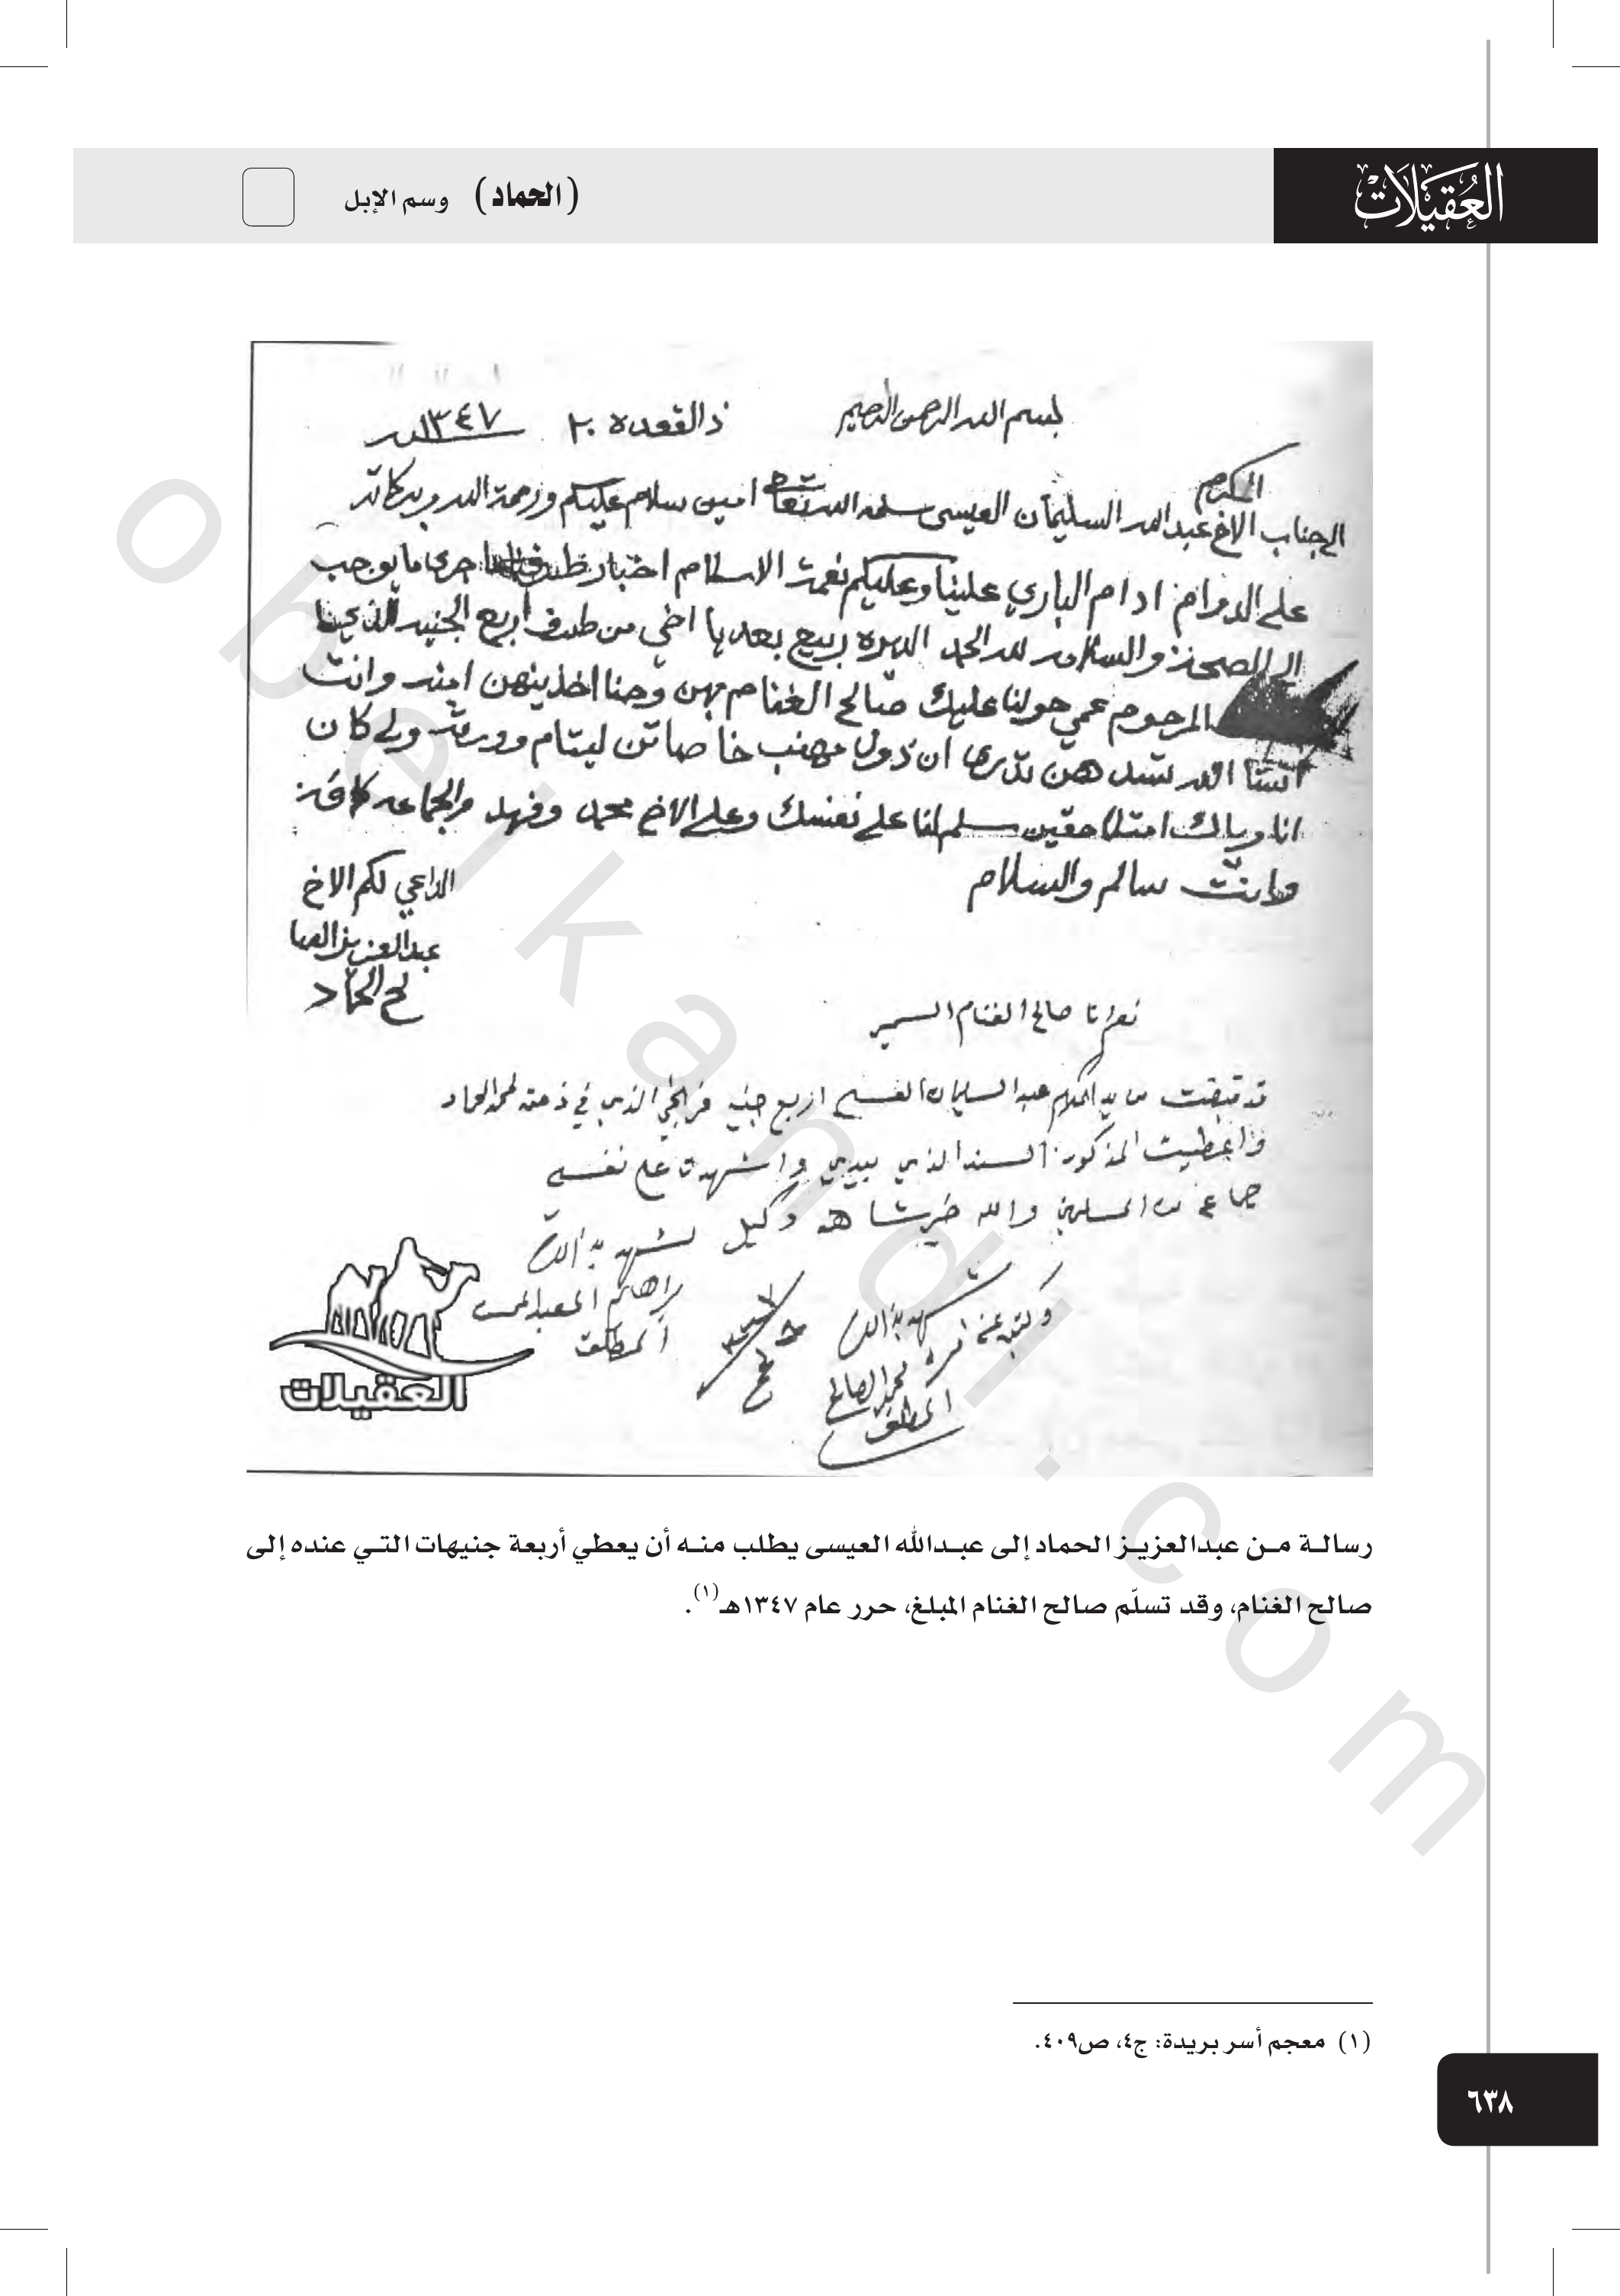 العُقَيْلَات
(الحماد) وسم الإبل
بسم الله الرحمن الرحيم
ذالقعدة ٢٠ ١٣٤٧
المكرم
الجناب الاخ عبدالله السليمان العيسى سلمه الله تعا امين سلام عليكم ورحمة الله وبركاته
على الدوام ادام الباري علينا وعليكم نعمت الاسلام اخبار جرى ما يوجب
والسلامه لله الحمد الديره ربيع بعده يا اخي من طرف اربع الجنيه الذي
المرحوم عمي حولنا عليك صالح الغنام بهن وحنا اخذينهن امنه وانت
الله هن تدرى ان ذولي خاصاتن ليتام وورثه ولي كان
انا وياك سلم لنا على نفسك وعلى الاخ محمد وفهد والجماعه كافة
وانت سالم والسلام
الداعي لكم الاخ
عبدالعزيز الصا
لح الحماد
نعم انا صالح الغنام السمير
قد قبضت من يد المكرم عبدالله السليمان العيسى اربع جنيه الذي في ذمته لمحمد الحماد
واعطيت المذكور السند الذي بيدي واشهدت على نفسي
جماعة من المسلمين والله خير شاهد ووكيل شهد به
وكتبه عن امره شهد به
المطلق
محمد الصالح
المطلق
العقيلات
رسالة من عبدالعزيز الحماد إلى عبدالله العيسى يطلب منه أن يعطي أربعة جنيهات التي عنده إلى
صالح الغنام، وقد تسلّم صالح الغنام المبلغ، حرر عام ١٣٤٧هـ(١).
(١) معجم أسر بريدة: ج٤، ص٤٠٩.
٦٣٨
obeikandl.com